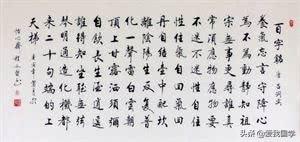 百字銘 唐 吕洞宾
養氣忘言守降心
為不為動静知祖
宗無事更尋誰真
常須應物應物要
不迷不迷性自住
性住氣自回氣回
丹自结壺中配坎
離陰陽生反復普
化一聲雷白雲朝
頂上甘露洒須彌
自飲長生酒逍遥
誰得知坐聽無弦
琴明通造化機都
來二十句端的上
天梯
头条 @爱我国学